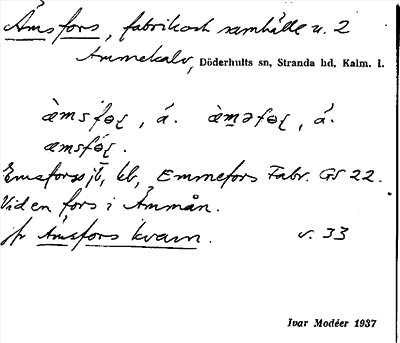 Ämsfors, fabrik och samhälle u. 2
Ammekalv, Döderhults sn, Stranda hd, Kalm. l.
æ̀msfɵɽ, á. æ̀məfɵɽ, á.
æmsfɵ́ɽ.
Emsfors jb, kb, Emmefors Fabr. GS 22.
Vid en fors i Ämmån.
jfr Ämsfors kvarn. v. 33
Ivar Modéer 1937